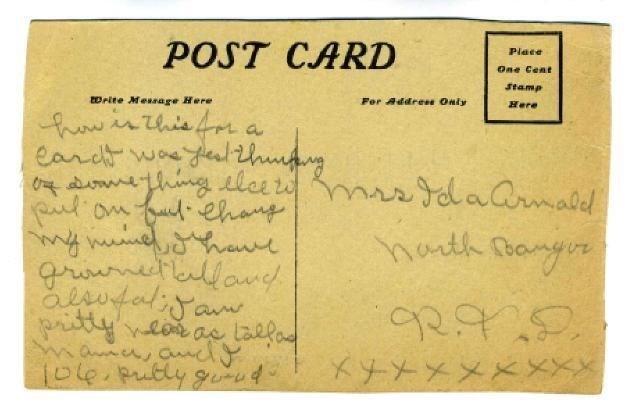 POST CARD
Place
One Cent
Stamp
Here
Write Message Here
For Address Only
how is this for a
card I was jest thinking
of something else to
put on but chang
my mind, I have
growned tall and
also fat; I am
pretty near as tall as
Mama, and I
106. pretty good.
Mrs Ida Arnold
North Bangor
R.F.D.
XXXXXXXXXX